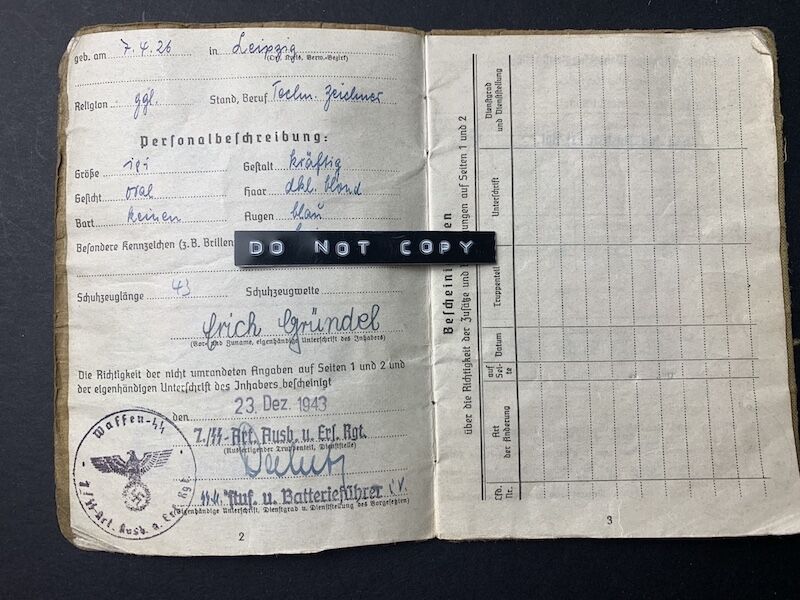 geb. am 7.4.26 in Leipzig
(Ort, Kreis, Verw.-Bezirk)
Religion: ggl. Stand, Beruf Techn. Zeichner
Personalbeschreibung:
Größe 171 Gestalt kräftig
Gesicht oval Haar dkl. blond
Bart keinen Augen blau
Besondere Kennzeichen (z.B. Brillen
DO NOT COPY
Schuhzeuglänge 43 Schuhzeugweite
Erich Gründel
(Vor- und Zuname, eigenhändige Unterschrift des Inhabers)
Die Richtigkeit der nicht umrandeten Angaben auf Seiten 1 und 2 und
der eigenhändigen Unterschrift des Inhabers bescheinigt
den 23. Dez. 1943
7./SS-Art. Ausb. u. Ers. Rgt.
(Ausfertigender Truppenteil, Dienststelle)
SS-U'Stuf. u. Batterieführer
(Eigenhändige Unterschrift, Dienstgrad u. Dienststellung des Vorgesetzten)
Waffen-SS
7./SS-Art. Ausb. u. Ers. Rgt.
2
Bescheini en
über die Richtigkeit der Zusätze und ungen auf Seiten 1 und 2
Lfd. Nr.
Art der Änderung
auf Seite
Datum
Truppenteil
Unterschrift
Dienstgrad und Dienststellung
3